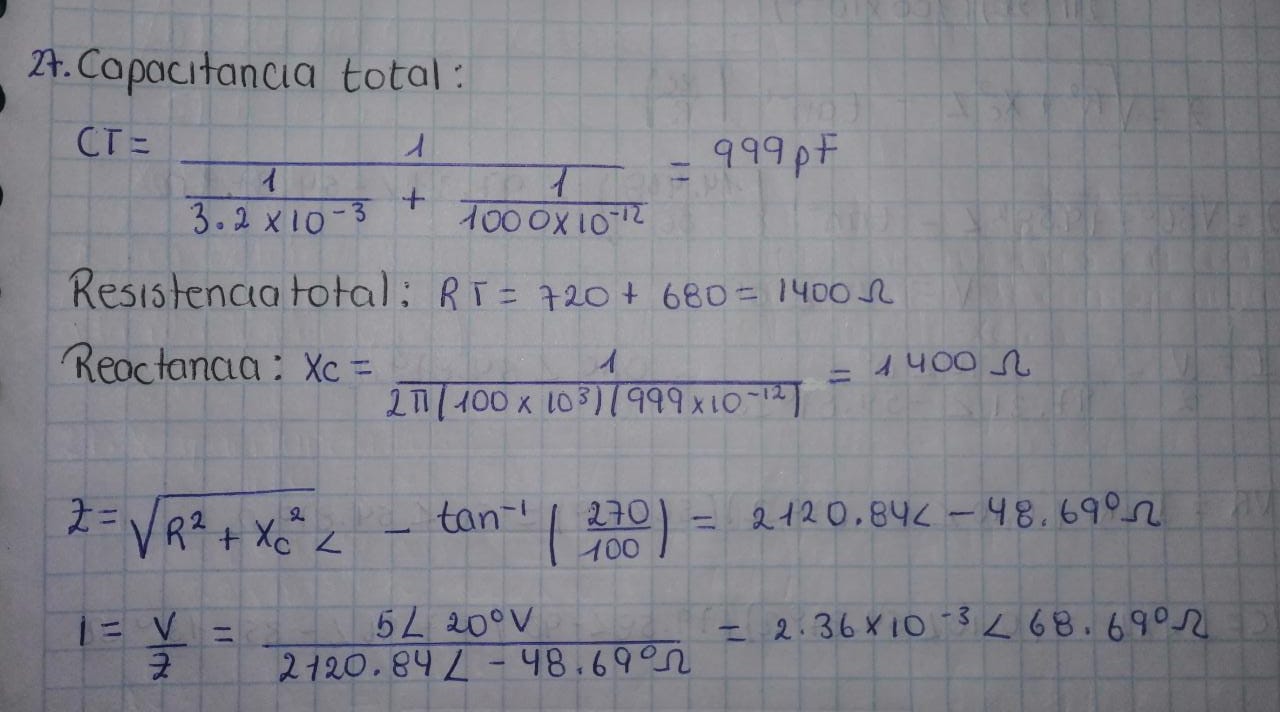 27. Capacitancia total:
CT = 1 / (1 / 3.2 x 10^-3 + 1 / 1000x10^-12) = 999 pF
Resistencia total: RT = 720 + 680 = 1400 Ω
Reactancia: Xc = 1 / 2π(100 x 10^3)(999 x10^-12) = 1400 Ω
Z = √R^2 + Xc^2 < - tan^-1 (270 / 100) = 2120.84< - 48.69° Ω
I = V / Z = 5∠ 20° V / 2120.84∠ - 48.69° Ω = 2.36x10^-3 < 68.69° Ω